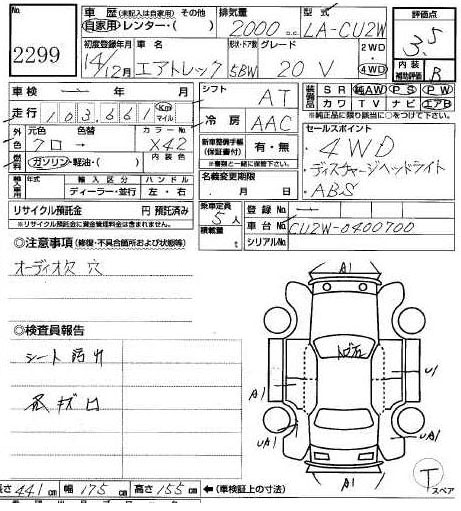 No.
2299
車 歴 (未記入は自家用) その他
自家用・レンター・( )
排気量
2000 c.c.
型式
LA-CU2W
評価点
3.5
初度登録年月
14/12月
車 名
エアトレック
形状・ドア数
5BW
グレード
20 V
2WD
4WD
内 装
補助評価
B
車検 年 月
走行 103,661 Km マイル
シフト
AT
装備品
SR 純AW PS PW
カワ TV ナビ エアB
※純正品に限り該当に○をつけて下さい。
外色
元色 色替 カラーNo.
クロ → X42
冷房
AAC
セールスポイント
4WD
ディスチャージヘッドライト
ABS
燃料
ガソリン・軽油・( )
内装色
新車整備手帳
(保証書付)
有・無
※書類と一緒に保管して下さい。
輸入車
年式
輸入区分
ハンドル
ディーラー・並行
左・右
名義変更期限
. 月 日
リサイクル預託金 円 預託済み
リサイクル預託金に資金管理料金は含まれません。
乗車定員
5人
積載量
登録No.
車台No. CU2W-0400700
シリアルNo.
◎注意事項 (修復・不具合箇所および状態等)
オーディオ欠 穴
◎検査員報告
シート汚れ
A1
A1
U1
UA1
UA1
A1
T
スペア
長さ 441 cm 幅 175 cm 高さ 155 cm ←(車検証上の寸法)